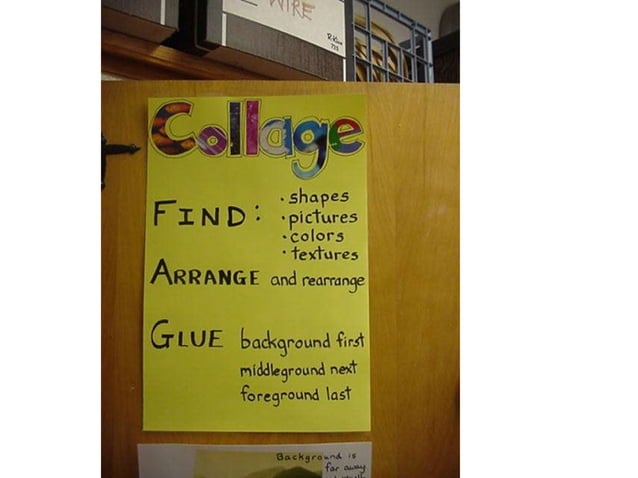 WIRE
Collage
FIND: · shapes
· pictures
· colors
· textures
ARRANGE and rearrange
GLUE background first
middleground next
foreground last
Background is
far away